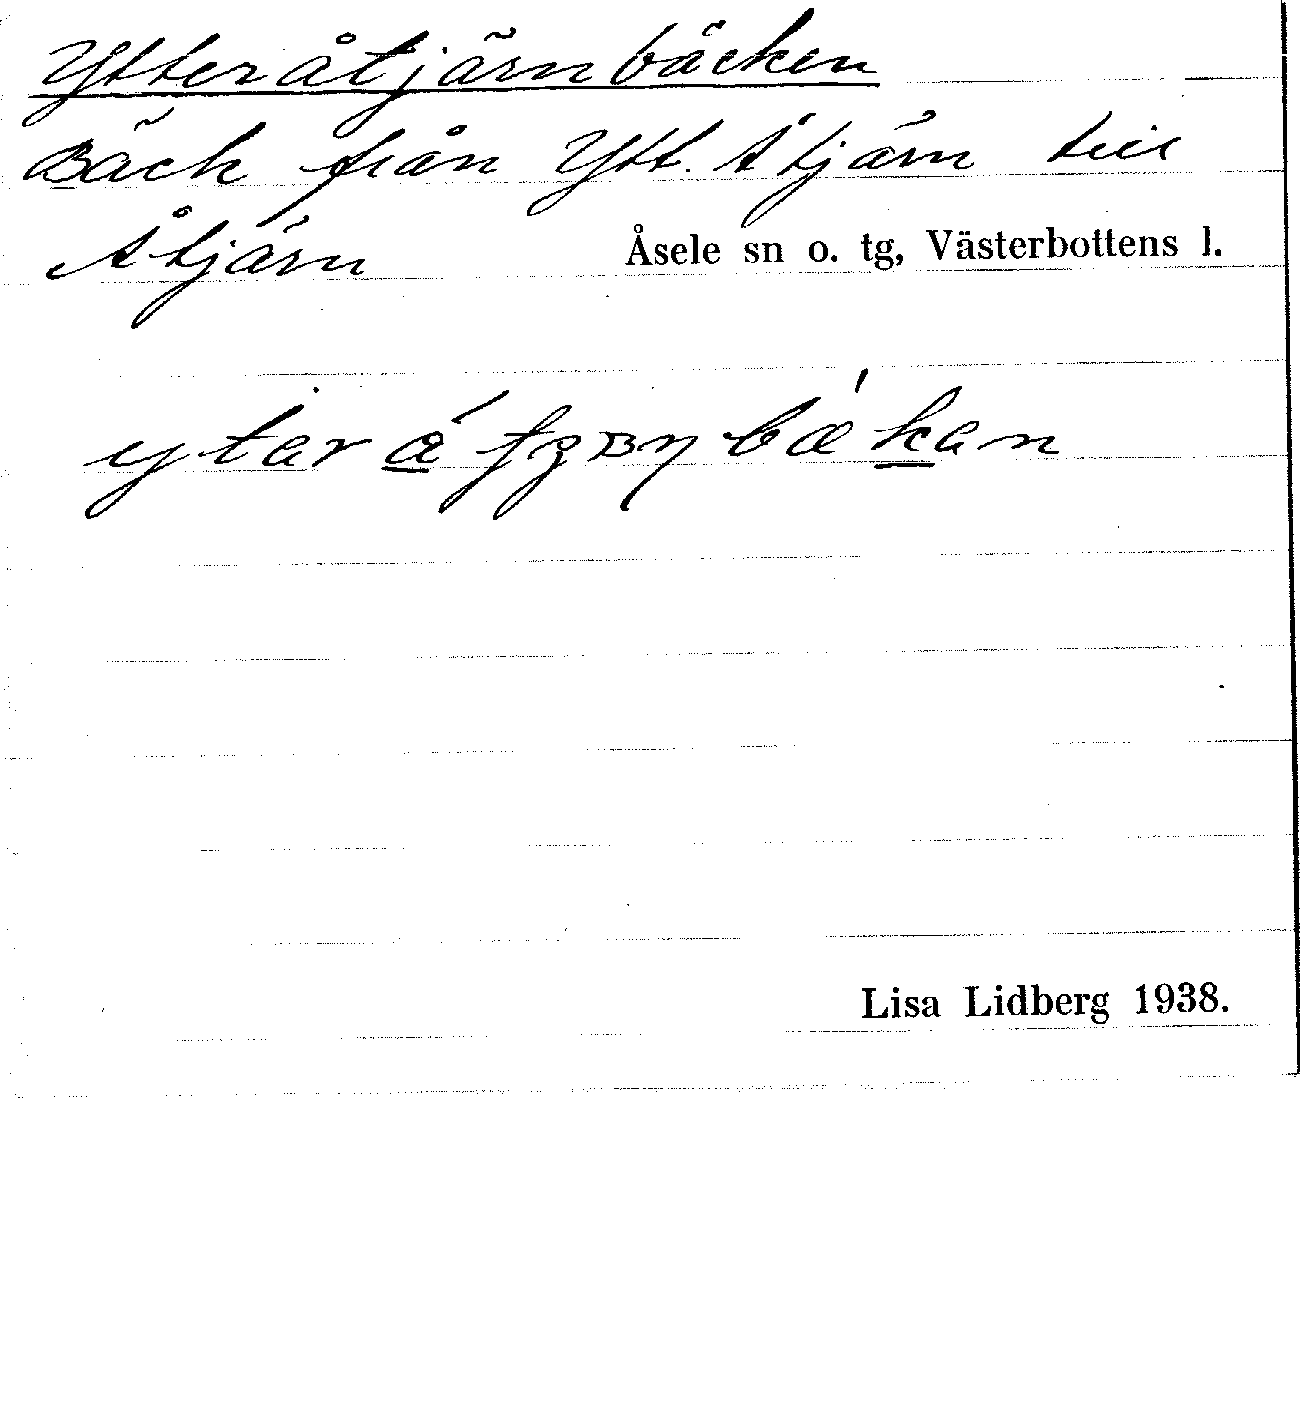 Ytteråtjärnbäcken
Bäck från Ytt. Åtjärn till
Åtjärn Åsele sn o. tg, Västerbottens l.
Lisa Lidberg 1938.